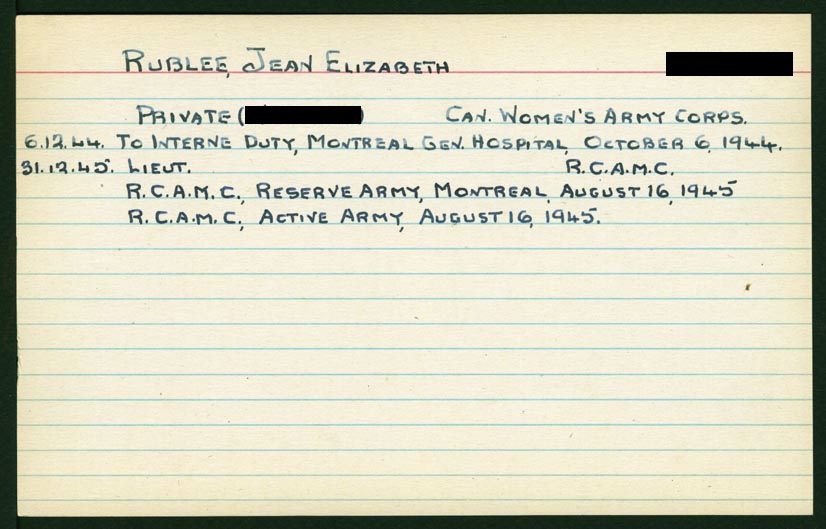 RUBLEE, JEAN ELIZABETH
PRIVATE ( ) CAN. WOMEN'S ARMY CORPS.
6.12.44. TO INTERNE DUTY, MONTREAL GEN. HOSPITAL, OCTOBER 6, 1944.
31.12.45. LIEUT. R.C.A.M.C.
R.C.A.M.C., RESERVE ARMY, MONTREAL, AUGUST 16, 1945
R.C.A.M.C., ACTIVE ARMY, AUGUST 16, 1945.